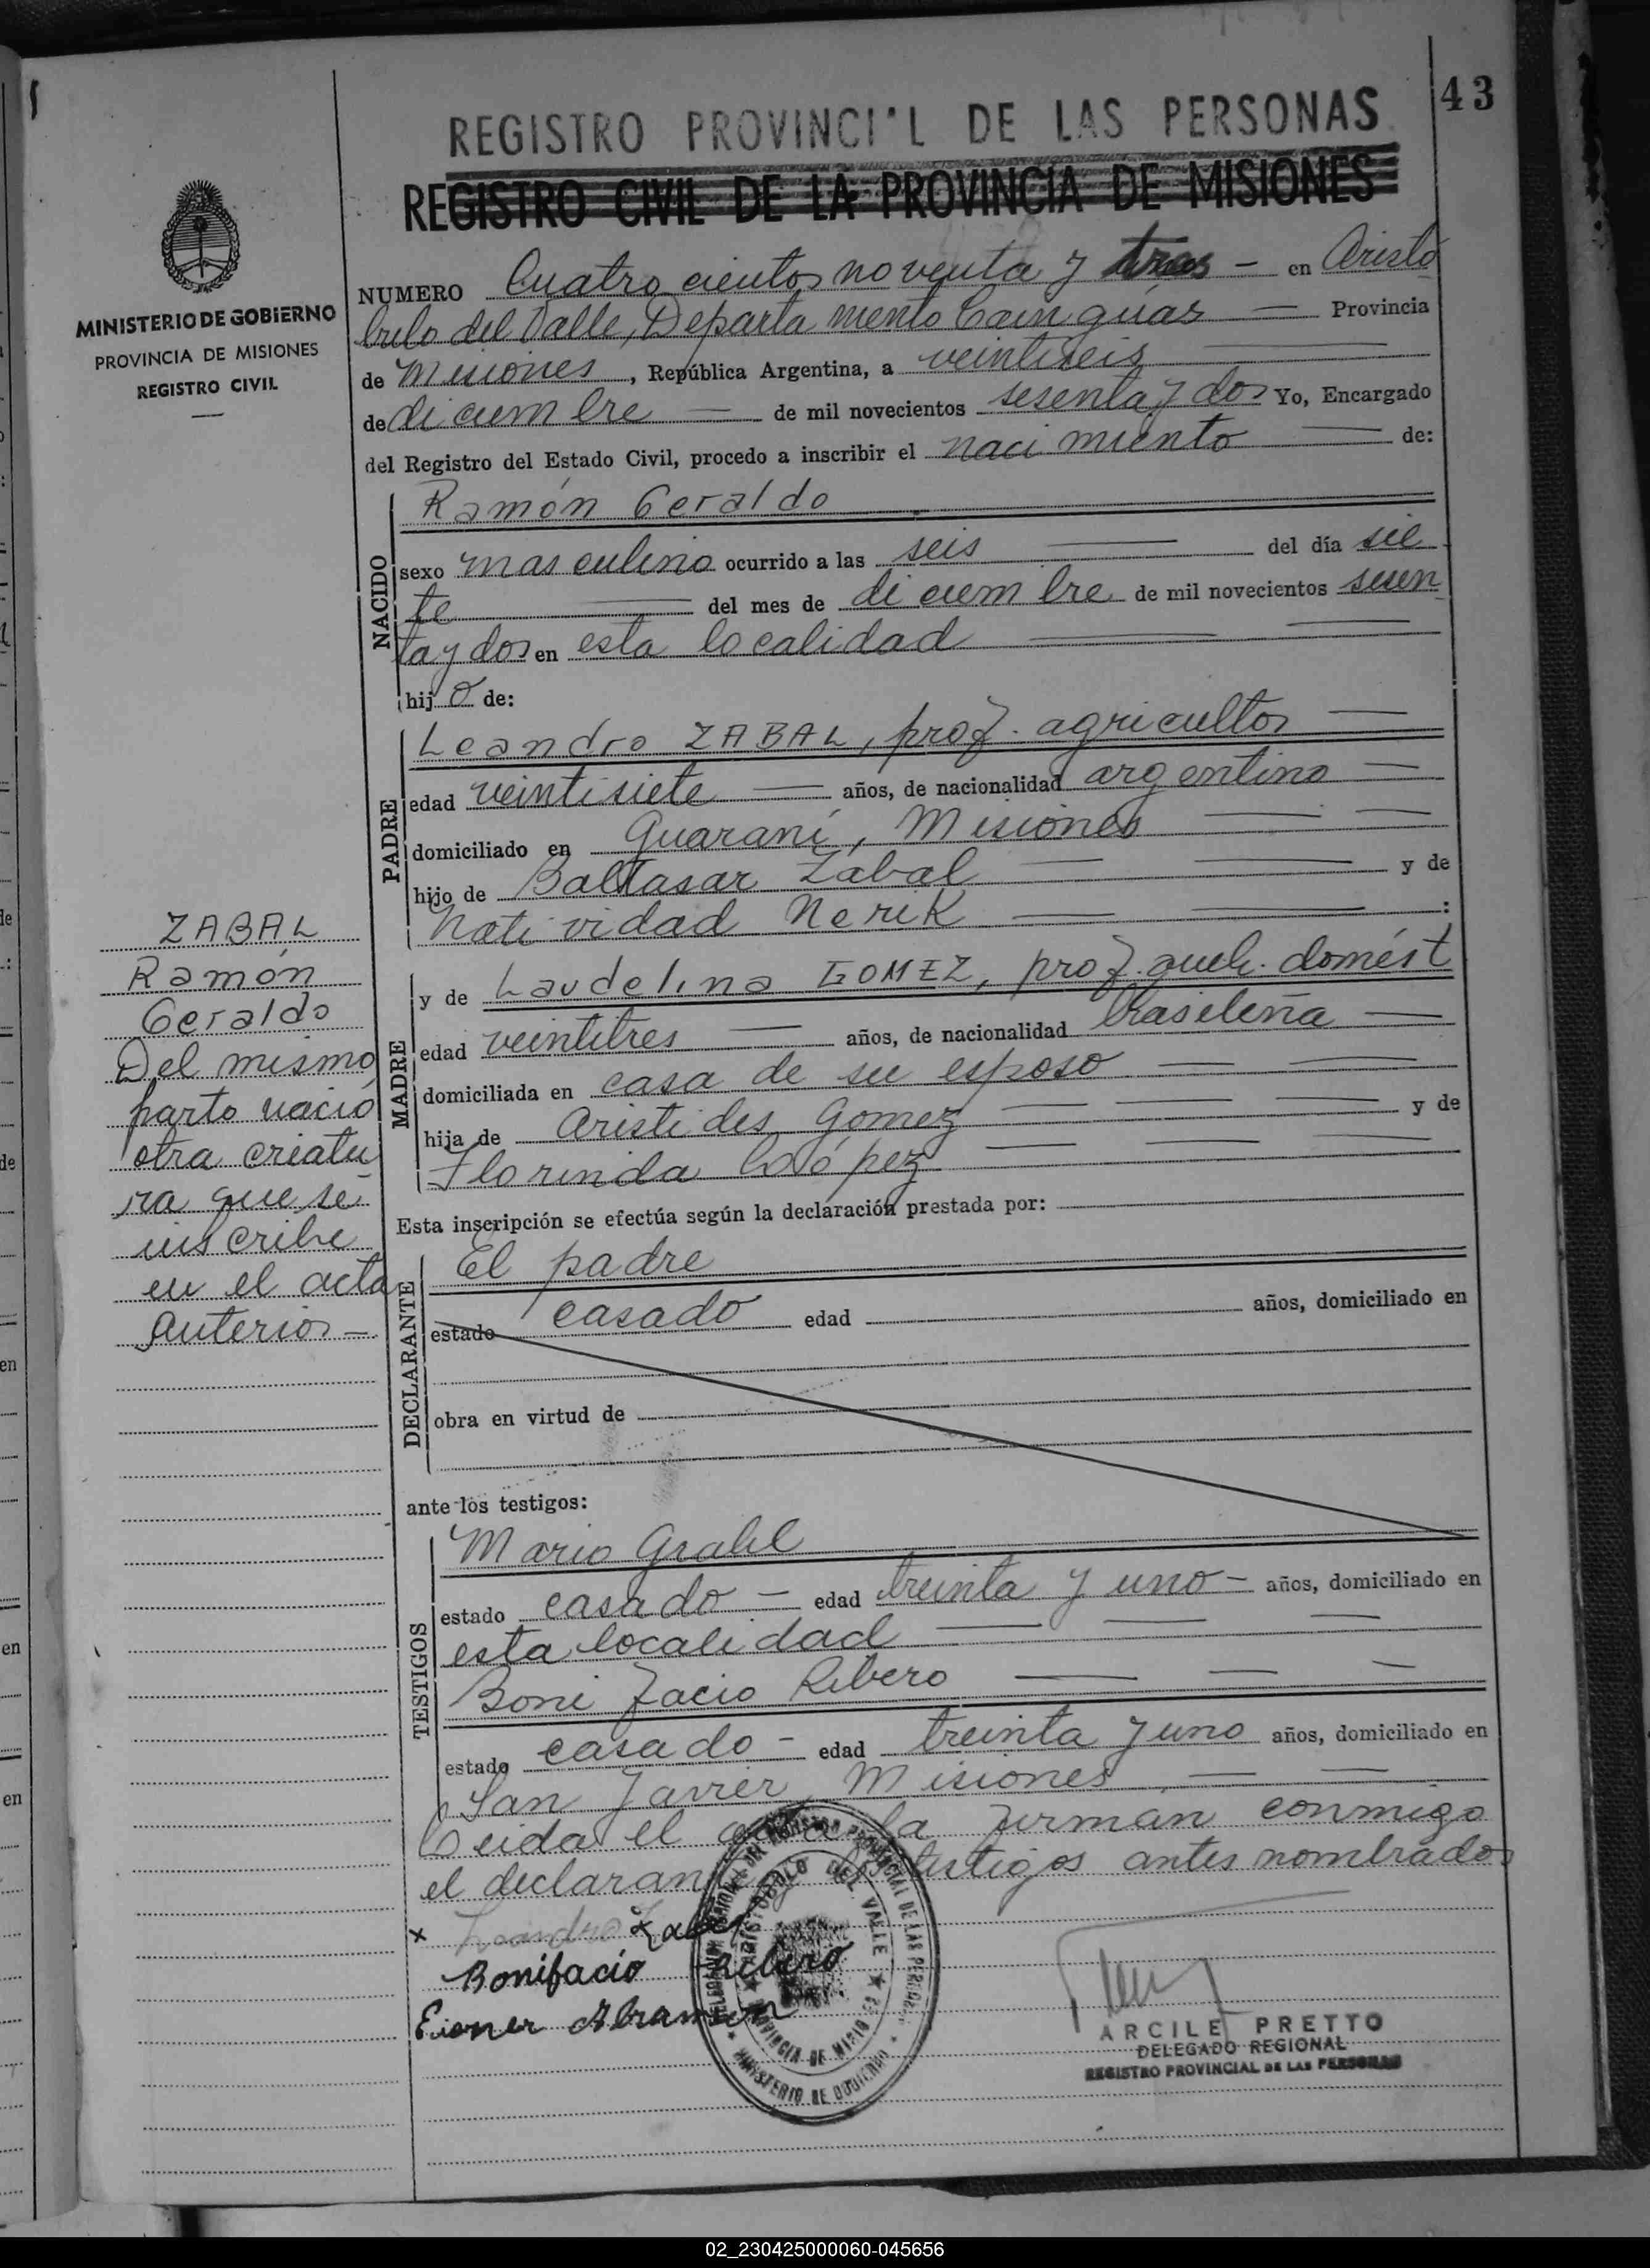 43
REGISTRO PROVINCI'L DE LAS PERSONAS
REGISTRO CIVIL DE LA PROVINCIA DE MISIONES
MINISTERIO DE GOBIERNO
PROVINCIA DE MISIONES
REGISTRO CIVIL
NUMERO Cuatro cientos noventa y tres - en Aristó
bulo del Valle, Departa mento Cain guás — Provincia
de Misiones, República Argentina, a veintiseis —
de di ciem bre — de mil novecientos sesenta y dos Yo, Encargado
del Registro del Estado Civil, procedo a inscribir el naci miento — de:
NACIDO
Ramón Geraldo
sexo mas culino ocurrido a las seis — del día sie
te — del mes de di ciem bre de mil novecientos sesen
ta y dos en esta localidad — —
hijo de:
PADRE
Leandro ZABAL, prof. agricultor —
edad veintisiete — años, de nacionalidad argentino —
domiciliado en Guaraní, Misiones — —
hijo de Baltasar Zabal — — y de
Nati vidad Nerik — — :
MADRE
y de Laudelina GOMEZ, prof. queh. domést
edad veintitres — años, de nacionalidad brasileña —
domiciliada en casa de su esposo — —
hija de Aristi des Gomez — — — y de
Florinda López — — —
Esta inscripción se efectúa según la declaración prestada por:
DECLARANTE
El padre
estado casado edad años, domiciliado en
obra en virtud de
ante los testigos:
TESTIGOS
Mario Grahl
estado casado - edad treinta y uno - años, domiciliado en
esta locali dad — — —
Boni facio Ribero — — —
estado casado - edad treinta y uno años, domiciliado en
San Javier, Misiones — —
Leida el acta la firman conmigo
el declarante y los testigos antes nombrados
ZABAL
Ramón
Geraldo
Del mismo
parto nació
otra criatu
ra que se
inscribe
en el acta
anterior -
x Leandro Zabal
Bonifacio Ribero
ARISTOBULO DEL VALLE
PROVINCIA DE MISIONES
MINISTERIO DE GOBIERNO
ARCILE PRETTO
DELEGADO REGIONAL
REGISTRO PROVINCIAL DE LAS PERSONAS
02_230425000060-045656